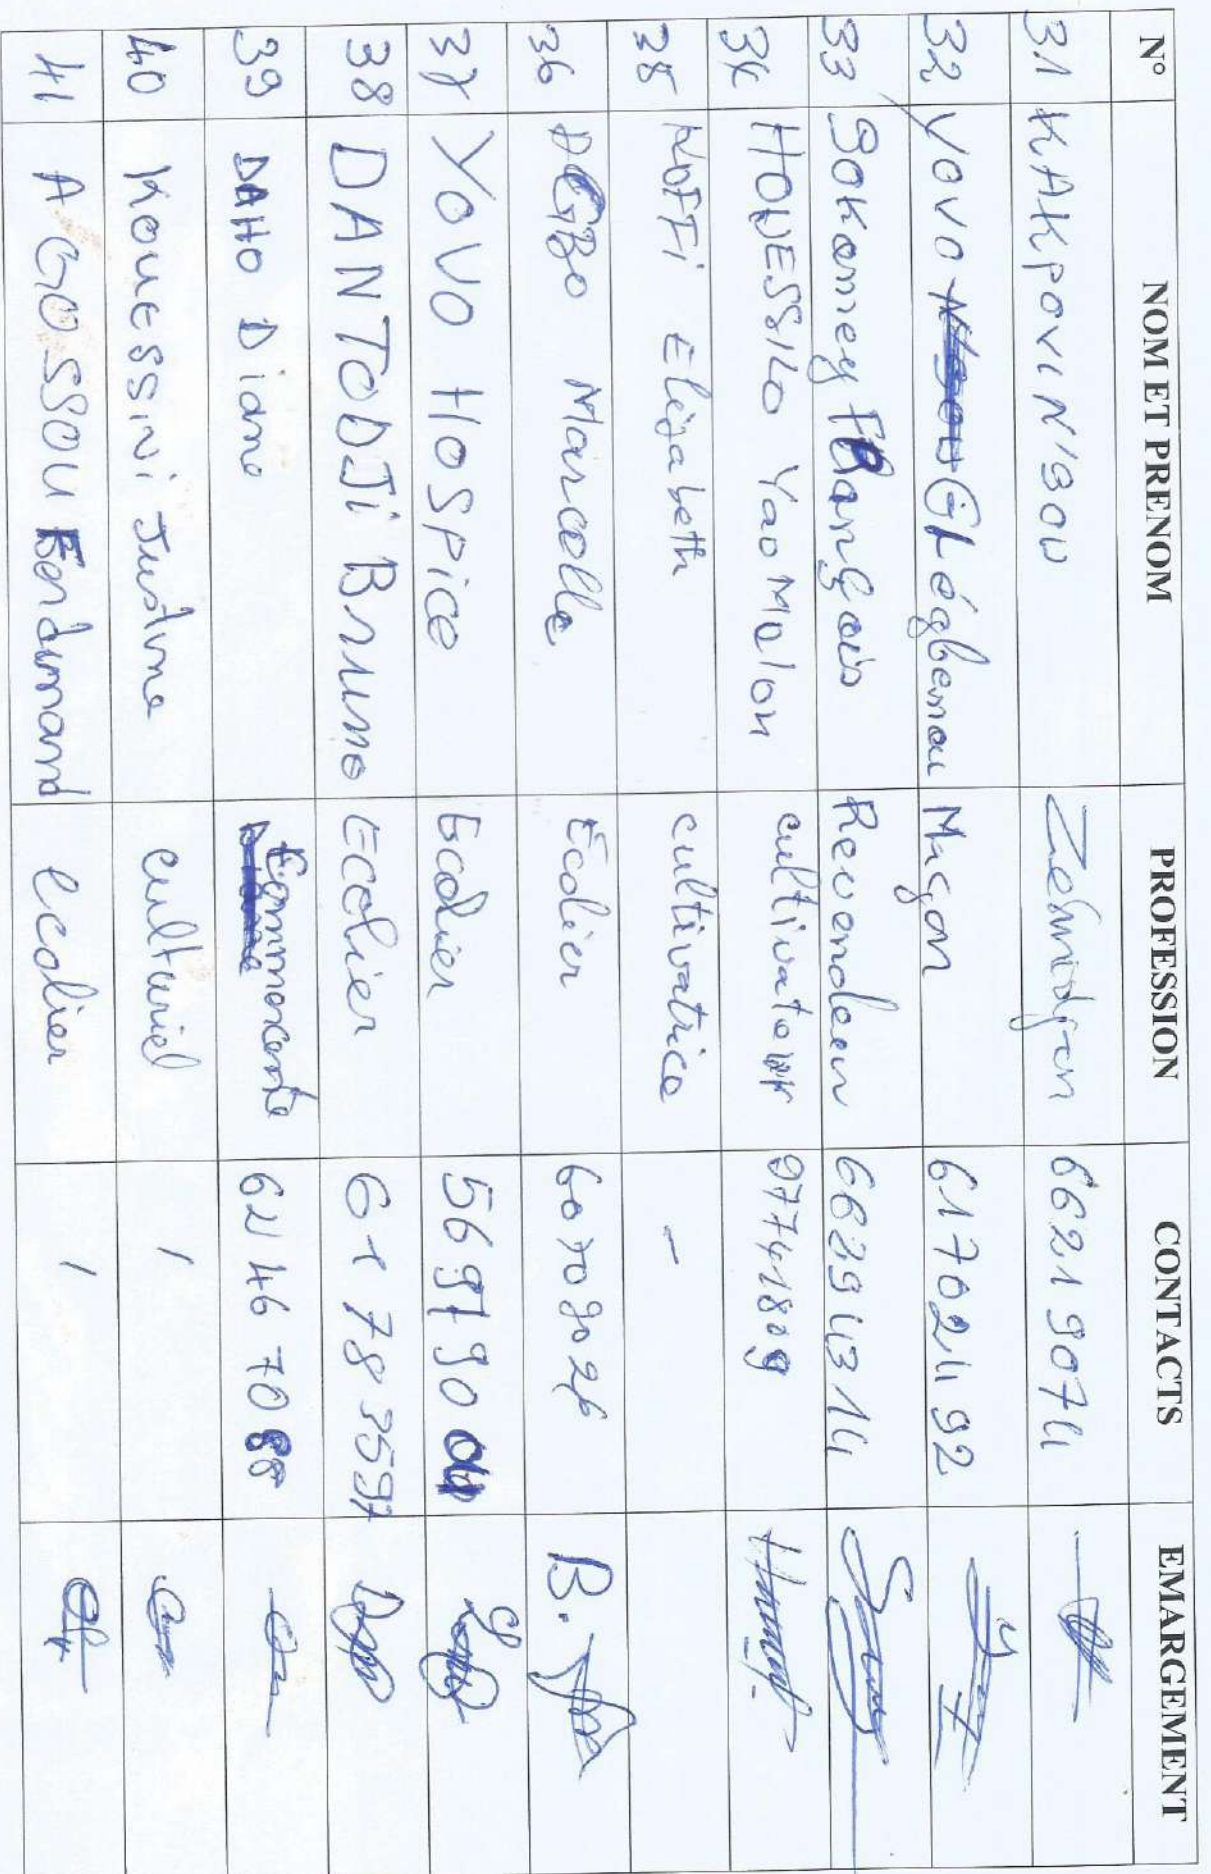 N° NOM ET PRENOM PROFESSION CONTACTS EMARGEMENT
31 KAKPOVI N'BOU Zémidjan 66219074
32 YOVO Glégbenou Maçon 61702492
33 Sokomey FRançois Revendeur 66394314
34 HOUESSILO Yao Malon cultivateur 97741809
35 KOFFI Elisabeth cultivatrice -
36 AGBO Marcelle Écolier 60709026
37 YOVO HOSPICE Ecolier 56979004
38 DANTODJi Bruno Ecolier 61783597
39 DAHO Diane Commerçante 62467088
40 KOUESSiVi Justine /
41 AGOSSOU Ferdinand ecolier /